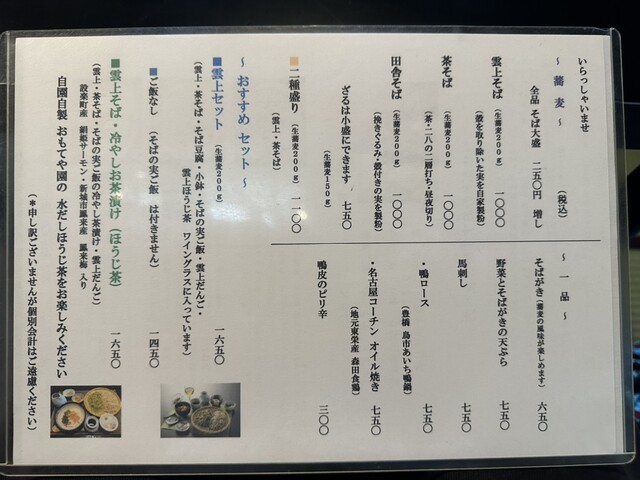 いらっしゃいませ
～ 蕎 麦 ～ （税込）
全品 そば大盛 二五〇円 増し
雲上そば （生蕎麦200g） 一〇〇〇
（殻を取り除いた実を自家製粉）
茶そば （生蕎麦200g） 一〇〇〇
（茶・二八の二層打ち・昼夜切り）
田舎そば （生蕎麦200g） 一〇〇〇
（挽きぐるみ・殻付きの実を製粉）
ざるは小盛にできます 七五〇
（生蕎麦150g）
■二種盛り （生蕎麦200g） 一一〇〇
（雲上・茶そば）
～ 一 品 ～
そばがき（蕎麦の風味が楽しめます） 六五〇
野菜とそばがきの天ぷら 七五〇
馬刺し 七五〇
・鴨ロース 七五〇
（豊橋 鳥市あいち鴨鍋）
・名古屋コーチン オイル焼き 七五〇
（地元東栄産 森田食鶏）
鴨皮のピリ辛 三〇〇
～ おすすめ セット ～
■雲上セット （生蕎麦200g） 一六五〇
（雲上・茶そば・そば豆腐・小鉢・そばの実ご飯・雲上だんご・
雲上ほうじ茶 ワイングラスに入っています）
■ご飯なし （そばの実ご飯 は付きません） 一四五〇
■雲上そば・冷やしお茶漬け（ほうじ茶） 一六五〇
（雲上・茶そば・そばの実ご飯の冷やし茶漬け・雲上だんご）
設楽町産 絹姫サーモン・新城市鳳来産 鳳来梅 入り
自園自製 おもてや園の 水だしほうじ茶をお楽しみください
（＊申し訳ございませんが個別会計はご遠慮ください）